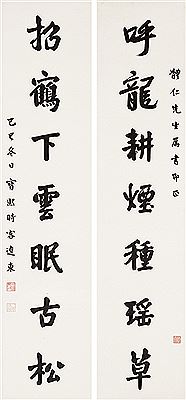 體仁先生屬書即正
呼龍耕煙種瑶草
招鶴下雲眠古松
己巳冬日寶熙時客遼東